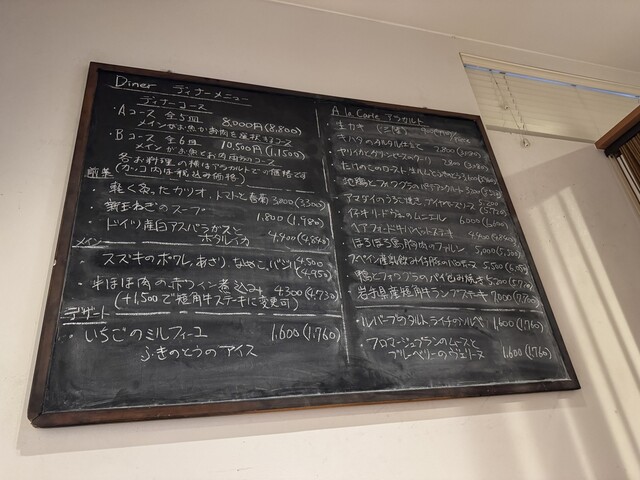 Diner ディナーメニュー
ディナーコース
・Aコース 全5皿 8,000円(8,800)
メインがお魚かお肉を選択するコース
・Bコース 全6皿 10,500円(11,550)
メインがお魚とお肉両方のコース
各お料理の横はアラカルトでの価格です
(カッコ内は税込み価格)
前菜
・軽く炙ったカツオ、トマトと春菊 3,000(3,300)
・新玉ねぎのスープ 1,800(1,980)
・ドイツ産白アスパラガスと
ホタルイカ 4,400(4,840)
メイン
・スズキのポワレ、あさり、なめこ、バジル 4,500
(4,950)
・牛ほほ肉の赤ワイン煮込み 4,300(4,730)
(+1,500で短角牛ステーキに変更可)
デザート
・いちごのミルフィーユ 1,600(1,760)
ふきのとうのアイス
A la Carte アラカルト
・生カキ
2,800
・たけのこのロースト
・地鶏とフォアグラの
・アマダイのうろこ焼き 5,200
(5,720)
・仔牛リ・ド・ヴォーのムニエル 6,000
・ヘアフォード牛ハバットステーキ 4,400(4,840)
・ほろほろ鳥 5,000
・スペイン産乳飲み仔豚の 5,500
・鴨とフォアグラのパイ包み焼き 5,200(5,720)
・岩手県産短角牛ランプステーキ 7,000(7,700)
・ルバーブのタルト、ライチのソルベ 1,600(1,760)
・フロマージュブランのムースと
ブルーベリーのヴェリーヌ 1,600(1,760)